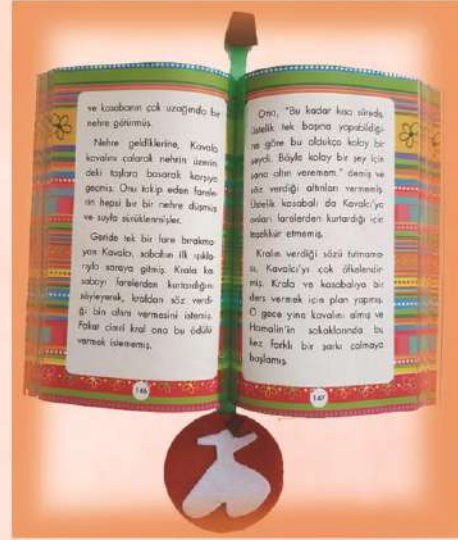 ve kasabanın çok uzağında bir
nehre götürmüş.
Nehre geldiklerine, Kavalcı
kavalını çalarak nehrin üzerin
deki taşlara basarak karşıya
geçmiş. Onu takip eden farele-
rin hepsi bir bir nehre düşmüş
ve suyla sürüklenmişler.
Geride tek bir fare bırakma-
yan Kavalcı, sabahın ilk ışıkla-
rıyla saraya gitmiş. Krala ka-
sabayı farelerden kurtardığını
söyleyerek, kraldan söz verdi-
ği bin altını vermesini istemiş.
Fakat cimri kral ona bu ödülü
vermek istememiş.
146
Ona, "Bu kadar kısa sürede,
üstelik tek başına yapabildiği-
ne göre bu oldukça kolay bir
şeydi. Böyle kolay bir şey için
sana altın veremem." demiş ve
söz verdiği altınları vermemiş.
Üstelik kasabalı da Kavalcı'ya
onları farelerden kurtardığı için
teşekkür etmemiş.
Kralın verdiği sözü tutmama-
sı, Kavalcı'yı çok öfkelendir-
miş. Krala ve kasabalıya bir
ders vermek için plan yapmış.
O gece yine kavalını almış ve
Hamalin'in sokaklarında bu
kez farklı bir şarkı çalmaya
başlamış.
147